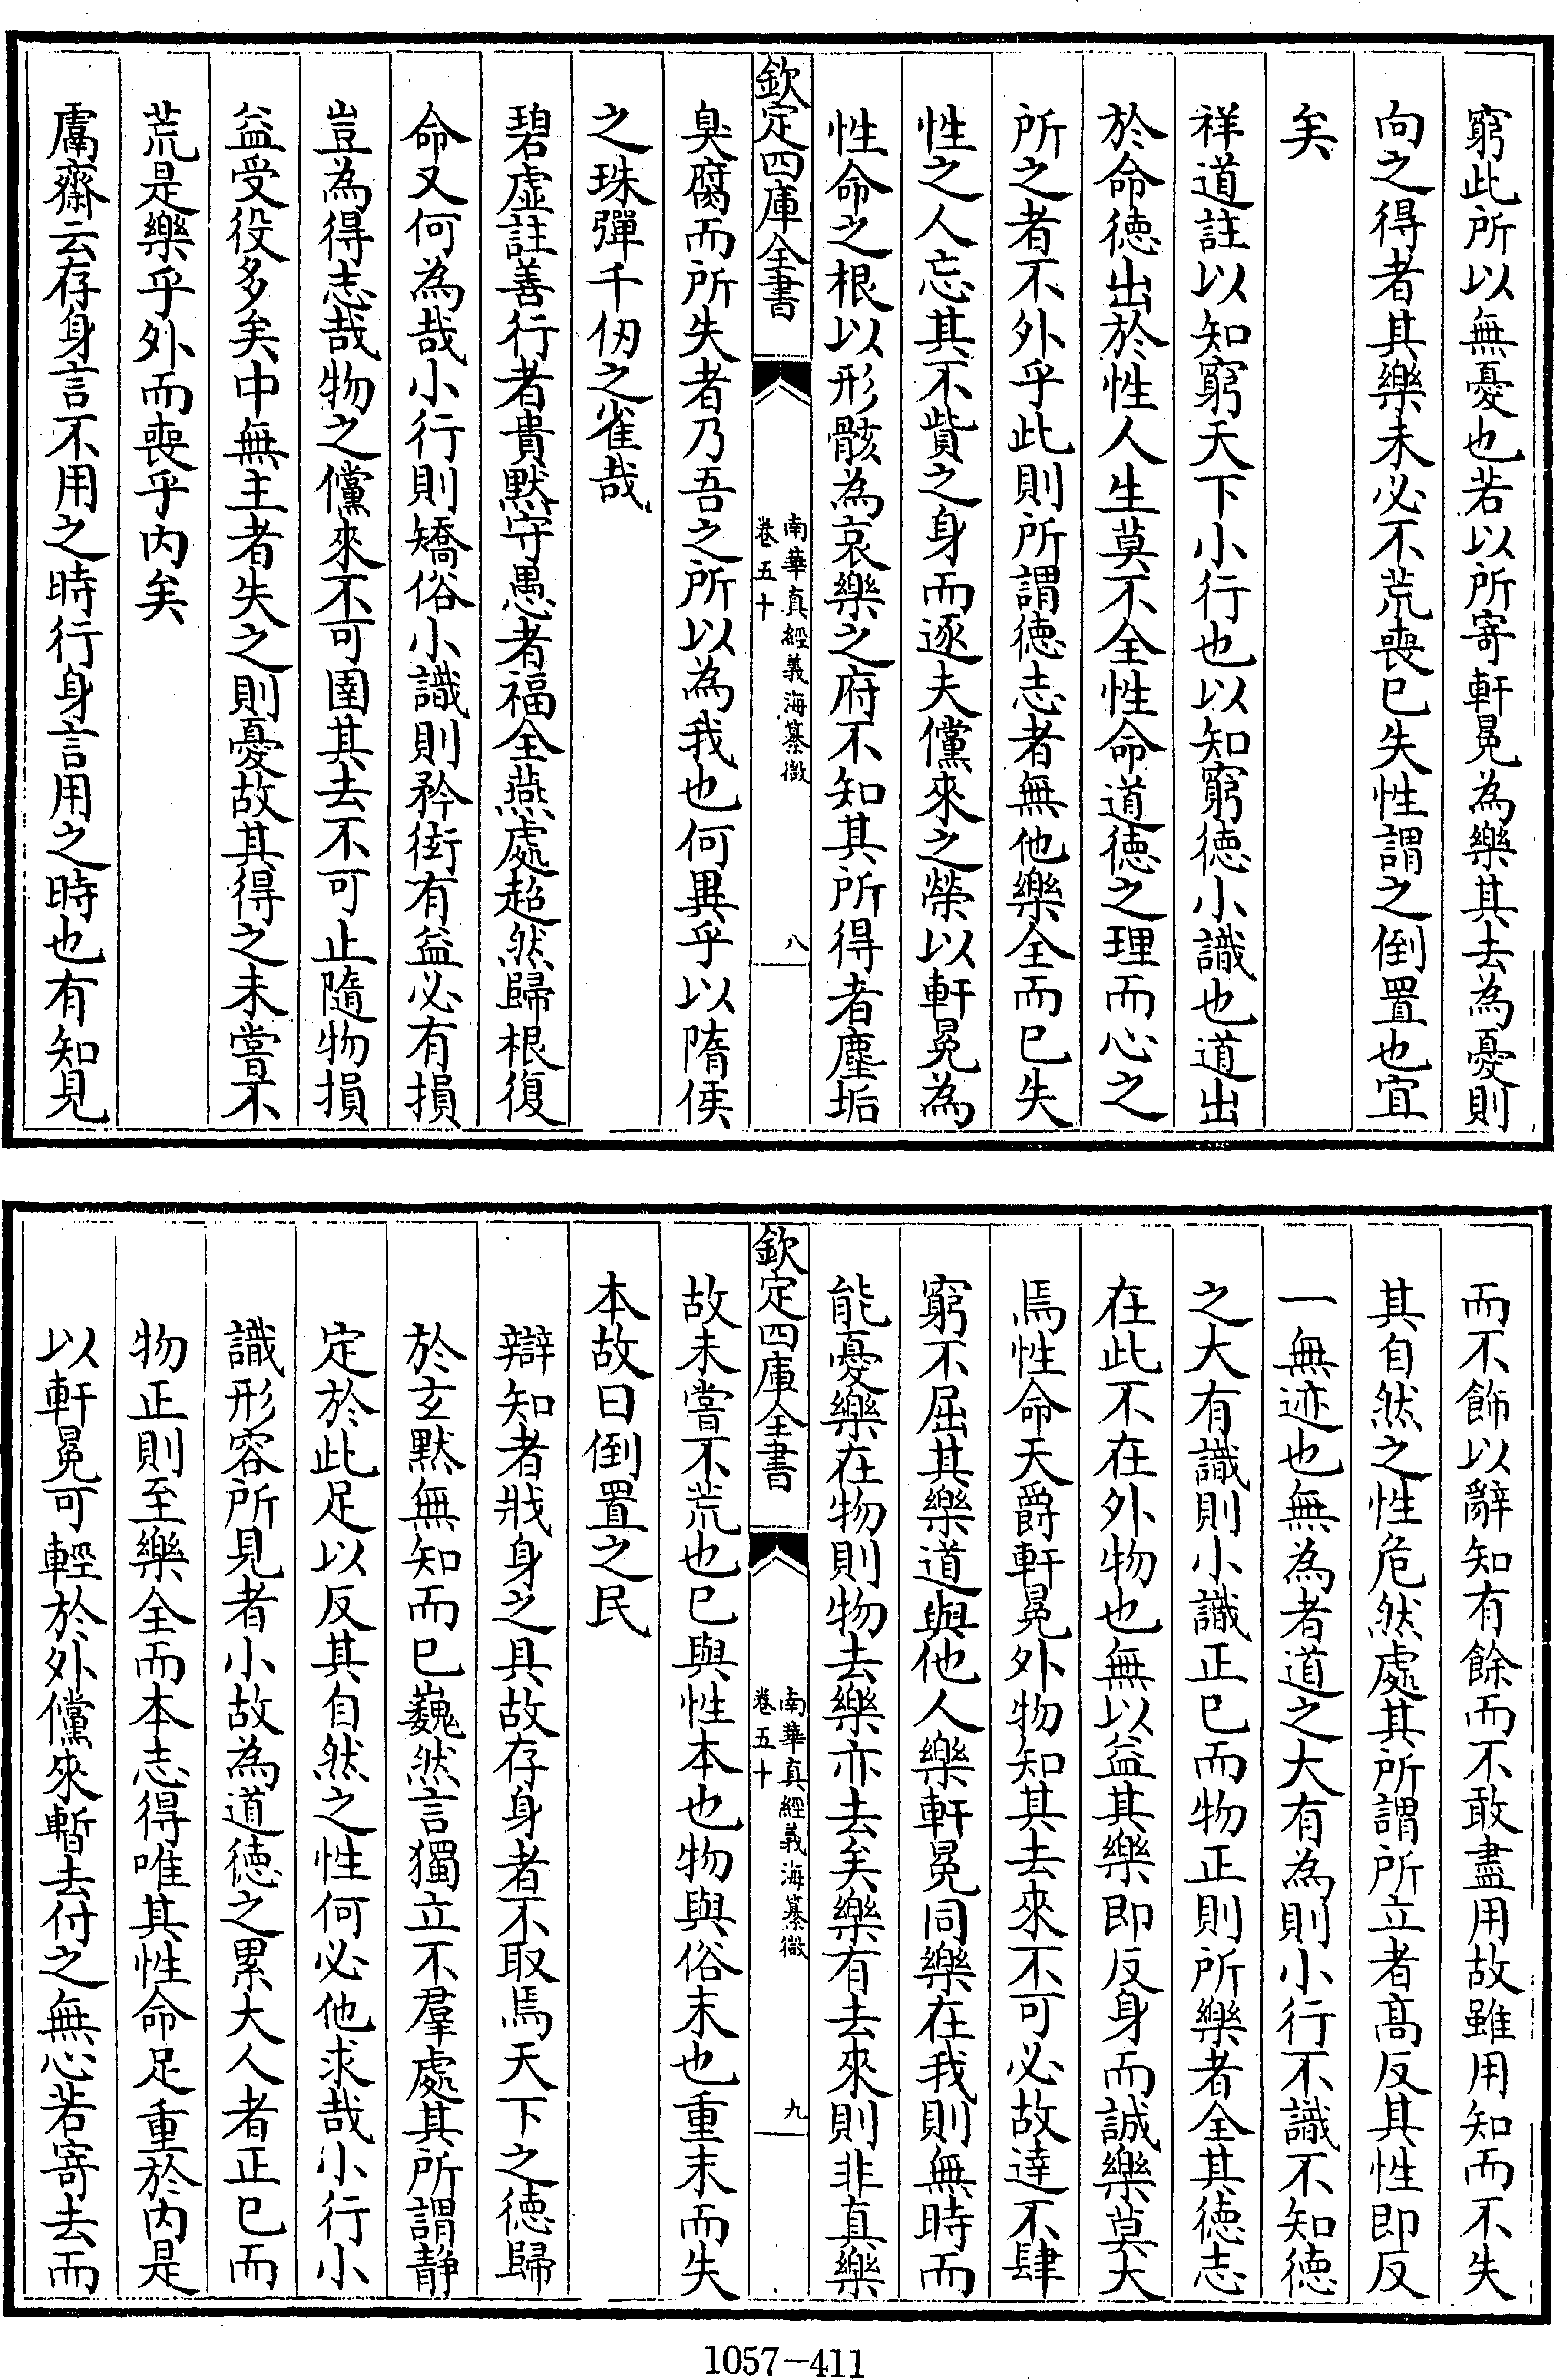 窮此所以無憂也若以所寄軒冕為樂其去為憂則
向之得者其樂未必不荒喪已失性謂之倒置也宜
矣
祥道註以知窮天下小行也以知窮徳小識也道出
於命徳出於性人生莫不全性命道徳之理而心之
所之者不外乎此則所謂徳志者無他樂全而已失
性之人忘其不貲之身而逐夫儻來之榮以軒冕為
性命之根以形骸為哀樂之府不知其所得者塵垢
欽定四庫全書
南華真經義海纂微
卷五十
八
臭腐而所失者乃吾之所以為我也何異乎以隋侯
之珠彈千仞之雀哉
碧虛註善行者貴黙守愚者福全燕處超然歸根復
命又何為哉小行則矯俗小識則矜衒有益必有損
豈為得志哉物之儻來不可圉其去不可止隨物損
益受役多矣中無主者失之則憂故其得之未嘗不
荒是樂乎外而喪乎内矣
鬳齋云存身言不用之時行身言用之時也有知見
而不飾以辭知有餘而不敢盡用故雖用知而不失
其自然之性危然處其所謂所立者髙反其性即反
一無迹也無為者道之大有為則小行不識不知徳
之大有識則小識正已而物正則所樂者全其徳志
在此不在外物也無以益其樂即反身而誠樂莫大
焉性命天爵軒冕外物知其去來不可必故達不肆
窮不屈其樂道與他人樂軒冕同樂在我則無時而
能憂樂在物則物去樂亦去矣樂有去來則非真樂
欽定四庫全書
南華真經義海纂微
卷五十
九
故未嘗不荒也已與性本也物與俗末也重末而失
本故曰倒置之民
辯知者戕身之具故存身者不取焉天下之徳歸
於玄黙無知而已巍然言獨立不羣處其所謂静
定於此足以反其自然之性何必他求哉小行小
識形容所見者小故為道徳之累大人者正已而
物正則至樂全而本志得唯其性命足重於内是
以軒冕可輕於外儻來暫去付之無心若寄去而
1057-411